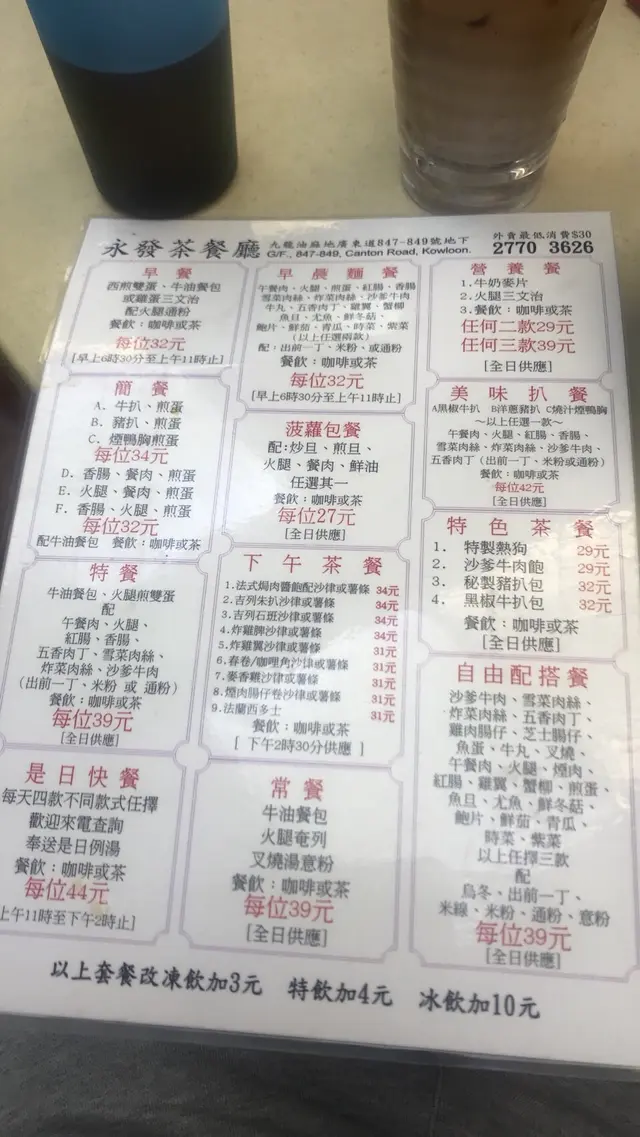 永發茶餐廳
九龍油麻地廣東道847-849號地下
G/F., 847-849, Canton Road, Kowloon.
外賣最低消費$30
2770 3626
早餐
西煎雙蛋、牛油餐包
或雞蛋三文治
配火腿通粉
餐飲：咖啡或茶
每位32元
[早上6時30分至上午11時止]
簡餐
A. 牛扒、煎蛋
B. 豬扒、煎蛋
C. 煙鴨胸煎蛋
每位34元
D. 香腸、餐肉、煎蛋
E. 火腿、餐肉、煎蛋
F. 香腸、火腿、煎蛋
每位32元
配牛油餐包 餐飲：咖啡或茶
特餐
牛油餐包、火腿煎雙蛋
配
午餐肉、火腿、
紅腸、香腸、
五香肉丁、雪菜肉絲、
炸菜肉絲、沙爹牛肉
（出前一丁、米粉 或 通粉）
餐飲：咖啡或茶
每位39元
[全日供應]
是日快餐
每天四款不同款式任擇
歡迎來電查詢
奉送是日例湯
餐飲：咖啡或茶
每位44元
上午11時至下午2時止]
早晨麵餐
午餐肉、火腿、煎蛋、紅腸、香腸
雪菜肉絲、炸菜肉絲、沙爹牛肉
牛丸、五香肉丁、雞翼、蟹柳
魚旦、尤魚、鮮冬菇、
鮑片、鮮茄、青瓜、時菜、紫菜
（以上任選兩款）
配，出前一丁、米粉、或通粉
餐飲：咖啡或茶
每位32元
[早上6時30分至上午11時止]
菠蘿包餐
配:炒旦、煎旦、
火腿、餐肉、鮮油
任選其一
餐飲：咖啡或茶
每位27元
[全日供應]
下午茶餐
1.法式焗肉醬飽配沙律或薯條 34元
2.吉列朱扒沙律或薯條 34元
3.吉列石班沙律或薯條 34元
4.炸雞脾沙律或薯條 34元
5.炸雞翼沙律或薯條 31元
6.春卷/咖喱角沙律或薯條 31元
7.麥香雞沙律或薯條 31元
8.煙肉腸仔卷沙律或薯條 31元
9.法蘭西多士 31元
餐飲：咖啡或茶
[ 下午2時30分供應 ]
常餐
牛油餐包
火腿奄列
叉燒湯意粉
餐飲：咖啡或茶
每位39元
[全日供應]
營養餐
1.牛奶麥片
2.火腿三文治
3.餐飲：咖啡或茶
任何二款29元
任何三款39元
[全日供應]
美味扒餐
A黑椒牛扒 B洋蔥豬扒 C燒汁煙鴨胸
～以上任選一款～
午餐肉、火腿、紅腸、香腸、
雪菜肉絲、炸菜肉絲、沙爹牛肉、
五香肉丁（出前一丁、米粉或通粉）
餐飲：咖啡或茶
每位42元
[全日供應]
特色茶餐
1. 特製熱狗 29元
2. 沙爹牛肉飽 29元
3. 秘製豬扒包 32元
4. 黑椒牛扒包 32元
餐飲：咖啡或茶
[全日供應]
自由配搭餐
沙爹牛肉、雪菜肉絲、
炸菜肉絲、五香肉丁、
雞肉腸仔、芝士腸仔、
魚蛋、牛丸、叉燒、
午餐肉、火腿、煙肉、
紅腸、雞翼、蟹柳、煎蛋、
魚旦、尤魚、鮮冬菇、
鮑片、鮮茄、青瓜、
時菜、紫菜
以上任擇三款
配
烏冬、出前一丁、
米線、米粉、通粉、意粉
每位39元
[全日供應]
以上套餐改凍飲加3元 特飲加4元 冰飲加10元